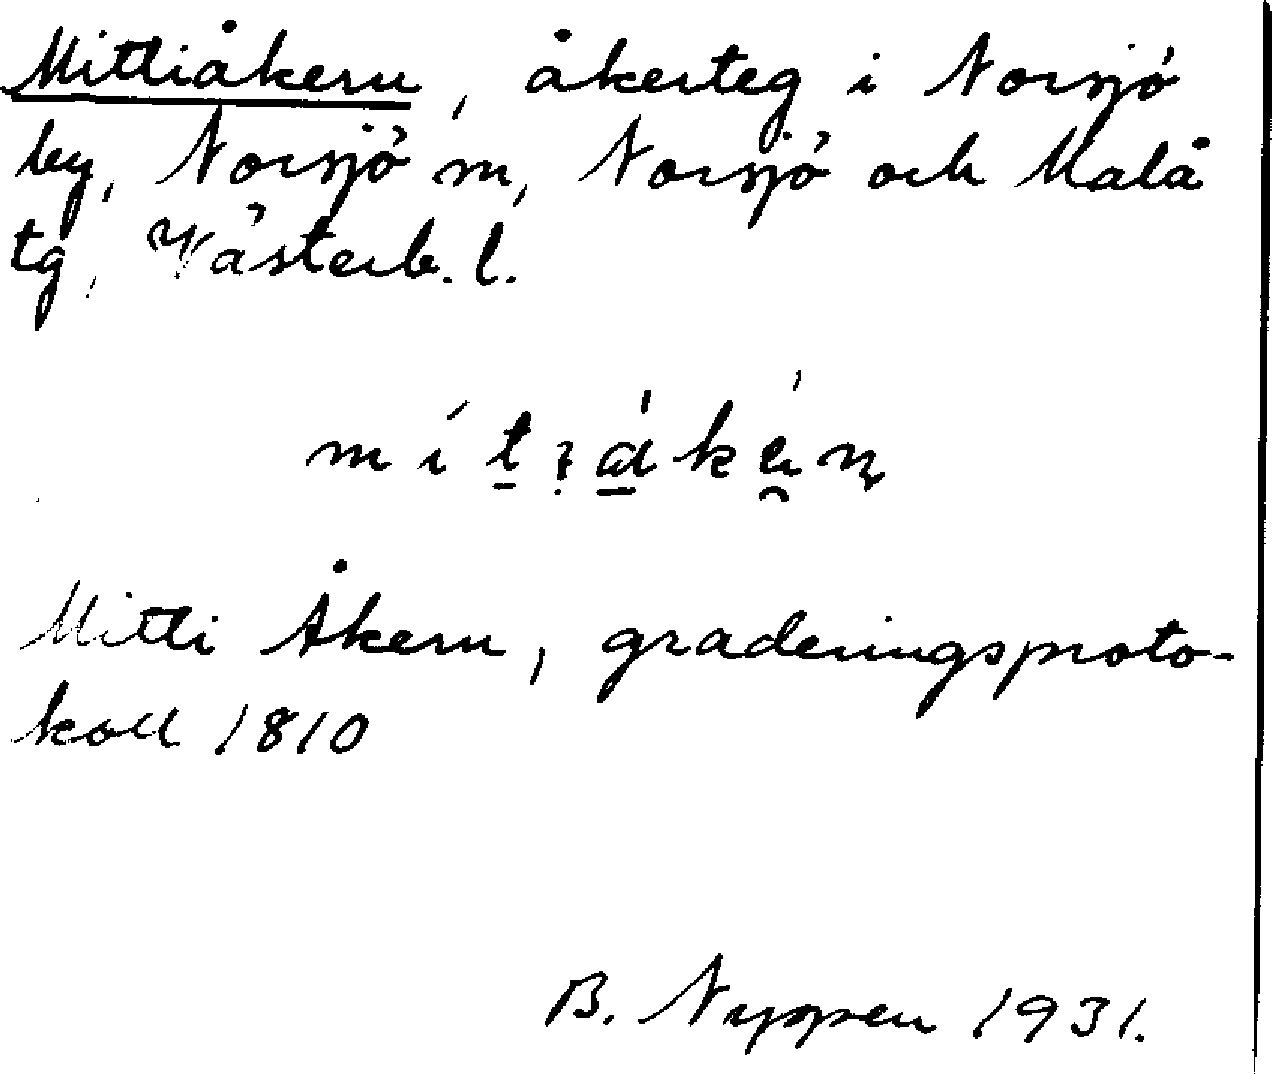 Mittiåkern, åkerteg i Norsjö
by, Norsjö sn, Norsjö och Malå
tg, Västerb. l.
Mitti Åkern, graderingsproto-
koll 1810
B. Nyssen 1931.